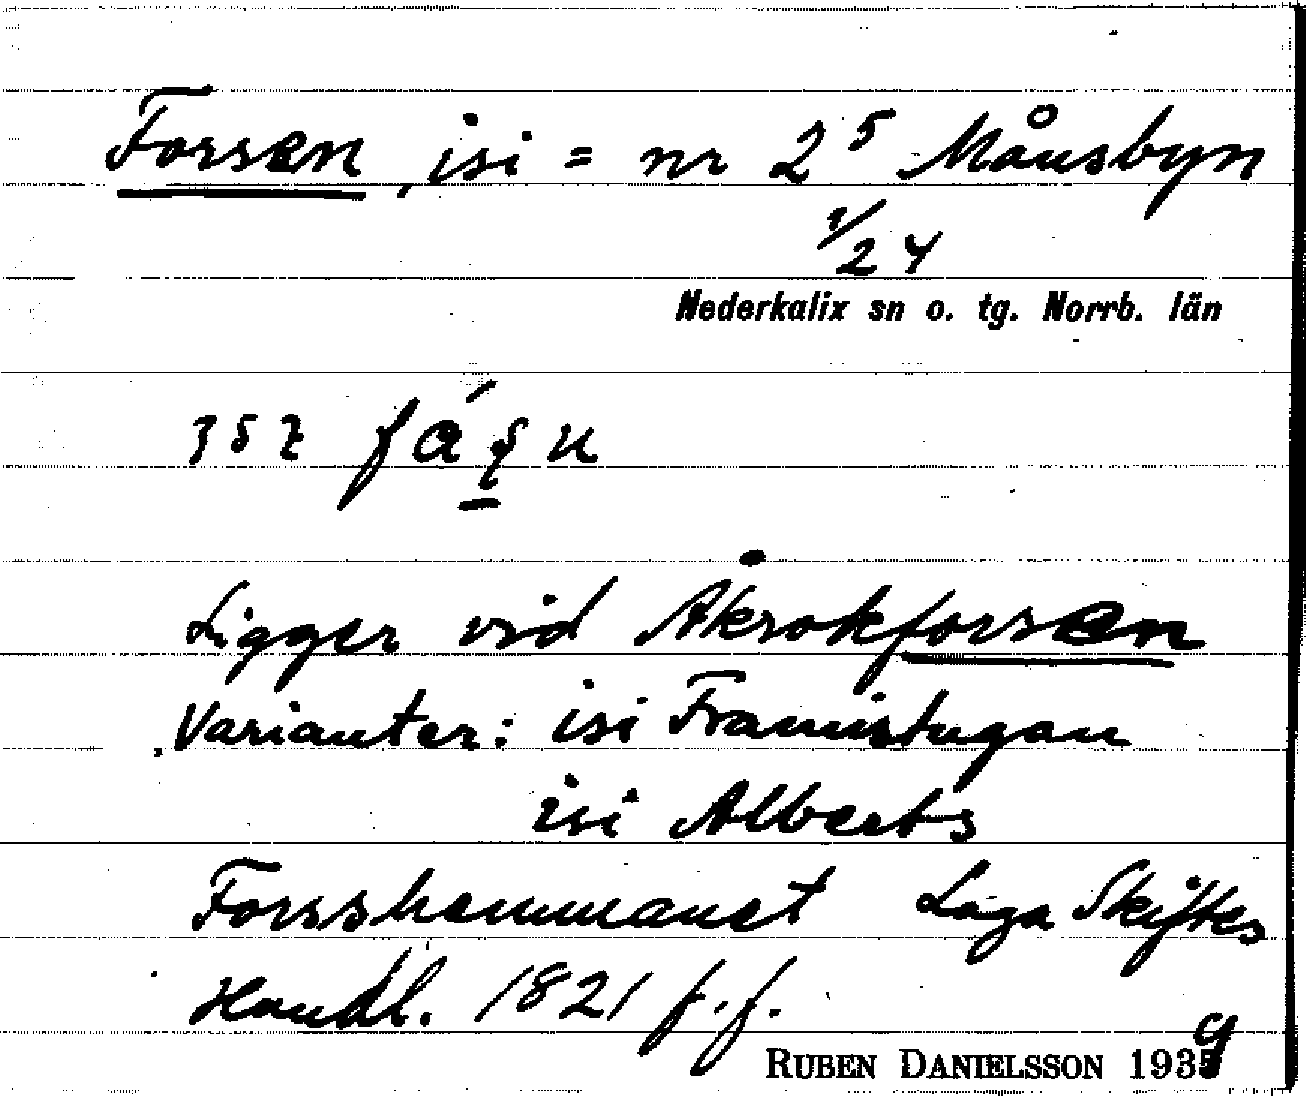 Forsen, isi = nr 2⁵ Månsbyn
1/24
Nederkalix sn o. tg. Norrb. län
Ligger vid Åkrokforsen
Varianter: isi Framistugan
isi Alberts
Forsshemmanet Laga Skiftes
Handl. 1821 f.f.
RUBEN DANIELSSON 1939